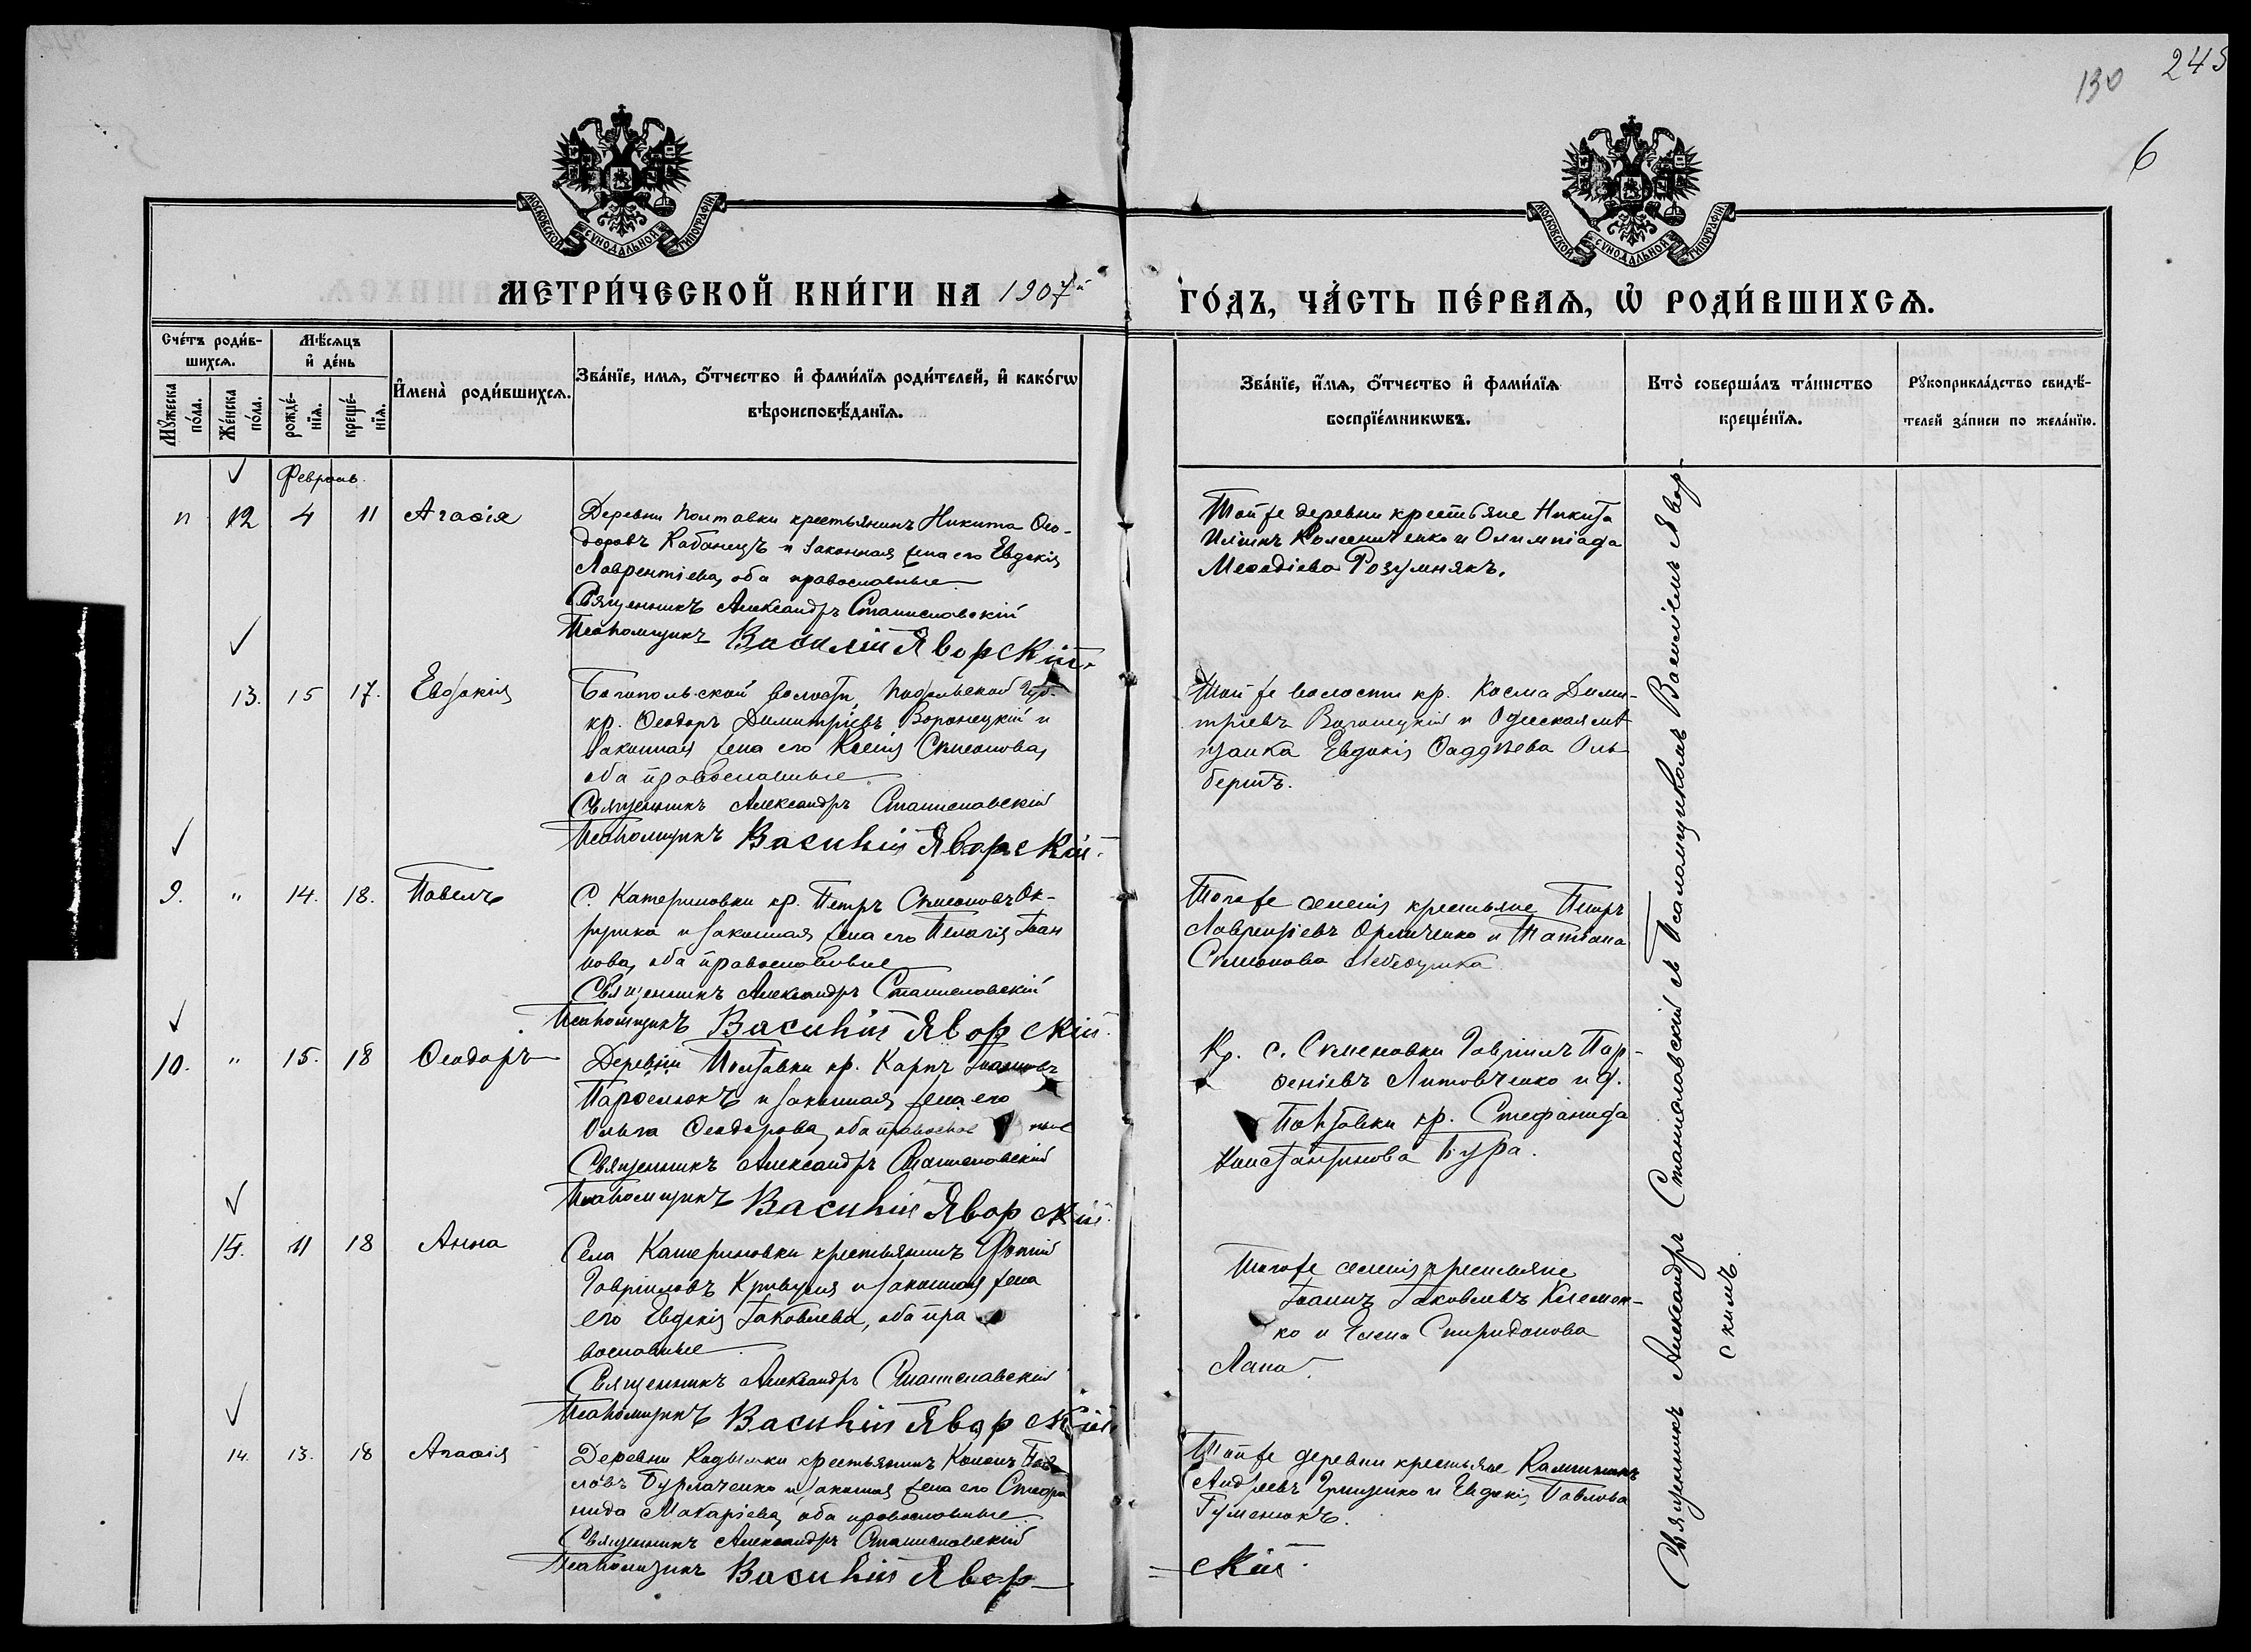 245
130
6
МОСКОВСКОЙ СУНОДАЛЬНОЙ ТИПОГРАФІИ
МОСКОВСКОЙ СУНОДАЛЬНОЙ ТИПОГРАФІИ
МЕТРИ́ЧЕСКОЙ КНИ́ГИ НА 1907й ГО́ДЪ, ЧА́СТЬ ПЕ́РВАѦ, Ѡ҆ РОДИ́ВШИХСѦ.
Сче́тъ роди́в-
шихсѧ.
Мꙋ́жеска по́ла.
Же́нска по́ла.
Мѣ́сѧцъ
и҆ де́нь
рожде́-
нїѧ.
креще́-
нїѧ.
И҆мена̀ роди́вшихсѧ.
Зва́нїе, имѧ, ѻ҆́тчество и҆ фами́лїѧ роди́телей, и҆ како́гѡ
вѣроисповѣ́данїѧ.
Зва́нїе, и҆́мѧ, ѻ҆́тчество и҆ фами́лїѧ
воспрїе́мникѡвъ.
Кто̀ соверша́лъ та́инство
креще́нїѧ.
Рꙋкоприкла́дство свидѣ́-
телей за́писи по жела́нїю.
Февраль.
" 12 4 11 Агаѳія
Деревни Полтавки крестьянинъ Никита Ѳео-
доровъ Кабанецъ и законная жена его Евдокія
Лаврентіева, оба православные
Священникъ Александръ Станиславскій
Псаломщикъ Василій Яворскій.
Той же деревни крестьяне Никита
Иліинъ Колесниченко и Олимпіада
Меѳодіева Розумнякъ.
13. 15 17. Евдокія
Богопольской волости, Подольской губ.
кр. Ѳеодоръ Димитріевъ Воронецкій и
законная жена его Ксенія Симеонова,
оба православные
Священникъ Александръ Станиславскій
Псаломщикъ Василій Яворскій.
Той же волости кр. Косма Дими-
тріевъ Воронецкій и Одесская мѣ
щанка Евдокія Ѳаддѣева Оль
бертъ.
9. " 14. 18. Павелъ
С. Катериновки кр. Петръ Симеоновъ
и законная жена его Пелагія Іоан
нова, оба православные
Священникъ Александръ Станиславскій
Псаломщикъ Василій Яворскій.
Того же селенія крестьяне Петръ
Лаврентіевъ и Татіана
Симеонова
10. " 15. 18 Ѳеодоръ
Деревни Полтавки кр. Карпъ Іоанновъ
Парѳелюкъ и законная жена его
Ольга Ѳеодорова, оба православные
Священникъ Александръ Станиславскій
Псаломщикъ Василій Яворскій.
Кр. с. Семеновки Гавріилъ Пар-
ѳеніевъ Литовченко и д.
Полтавки кр. Стефанида
Константинова Бура.
15. 11 18 Анна
Села Катериновки крестьянинъ Фотій
Гавріиловъ Кривуля и законная жена
его Евдокія Іаковлева, оба пра
вославные
Священникъ Александръ Станиславскій
Псаломщикъ Василій Яворскій.
Того же селенія крестьяне
Іоаннъ Іаковлевъ Клемен-
ко и Елена Спиридонова
Лапа.
14. 13. 18 Агаѳія
Деревни крестьянинъ Кононъ Пав
ловъ Бурлаченко и законная жена его Стефа
нида Макаріева, оба православные
Священникъ Александръ Станиславскій
Псаломщикъ Василій Явор-
=скій.
Той же деревни крестьяне
Андреевъ Грищенко и Евдокія Павлова
Гуменюкъ.
Священникъ Александръ Станиславскій съ Псаломщикомъ Василіемъ Явор-
скимъ.